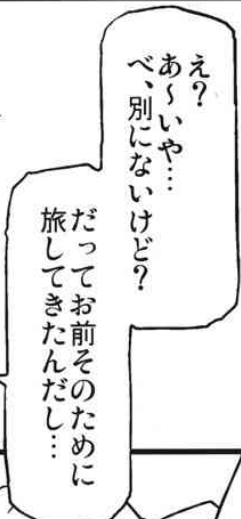 え?
あ~いや…
べ、別にないけど?
だってお前そのために
旅してきたんだし…